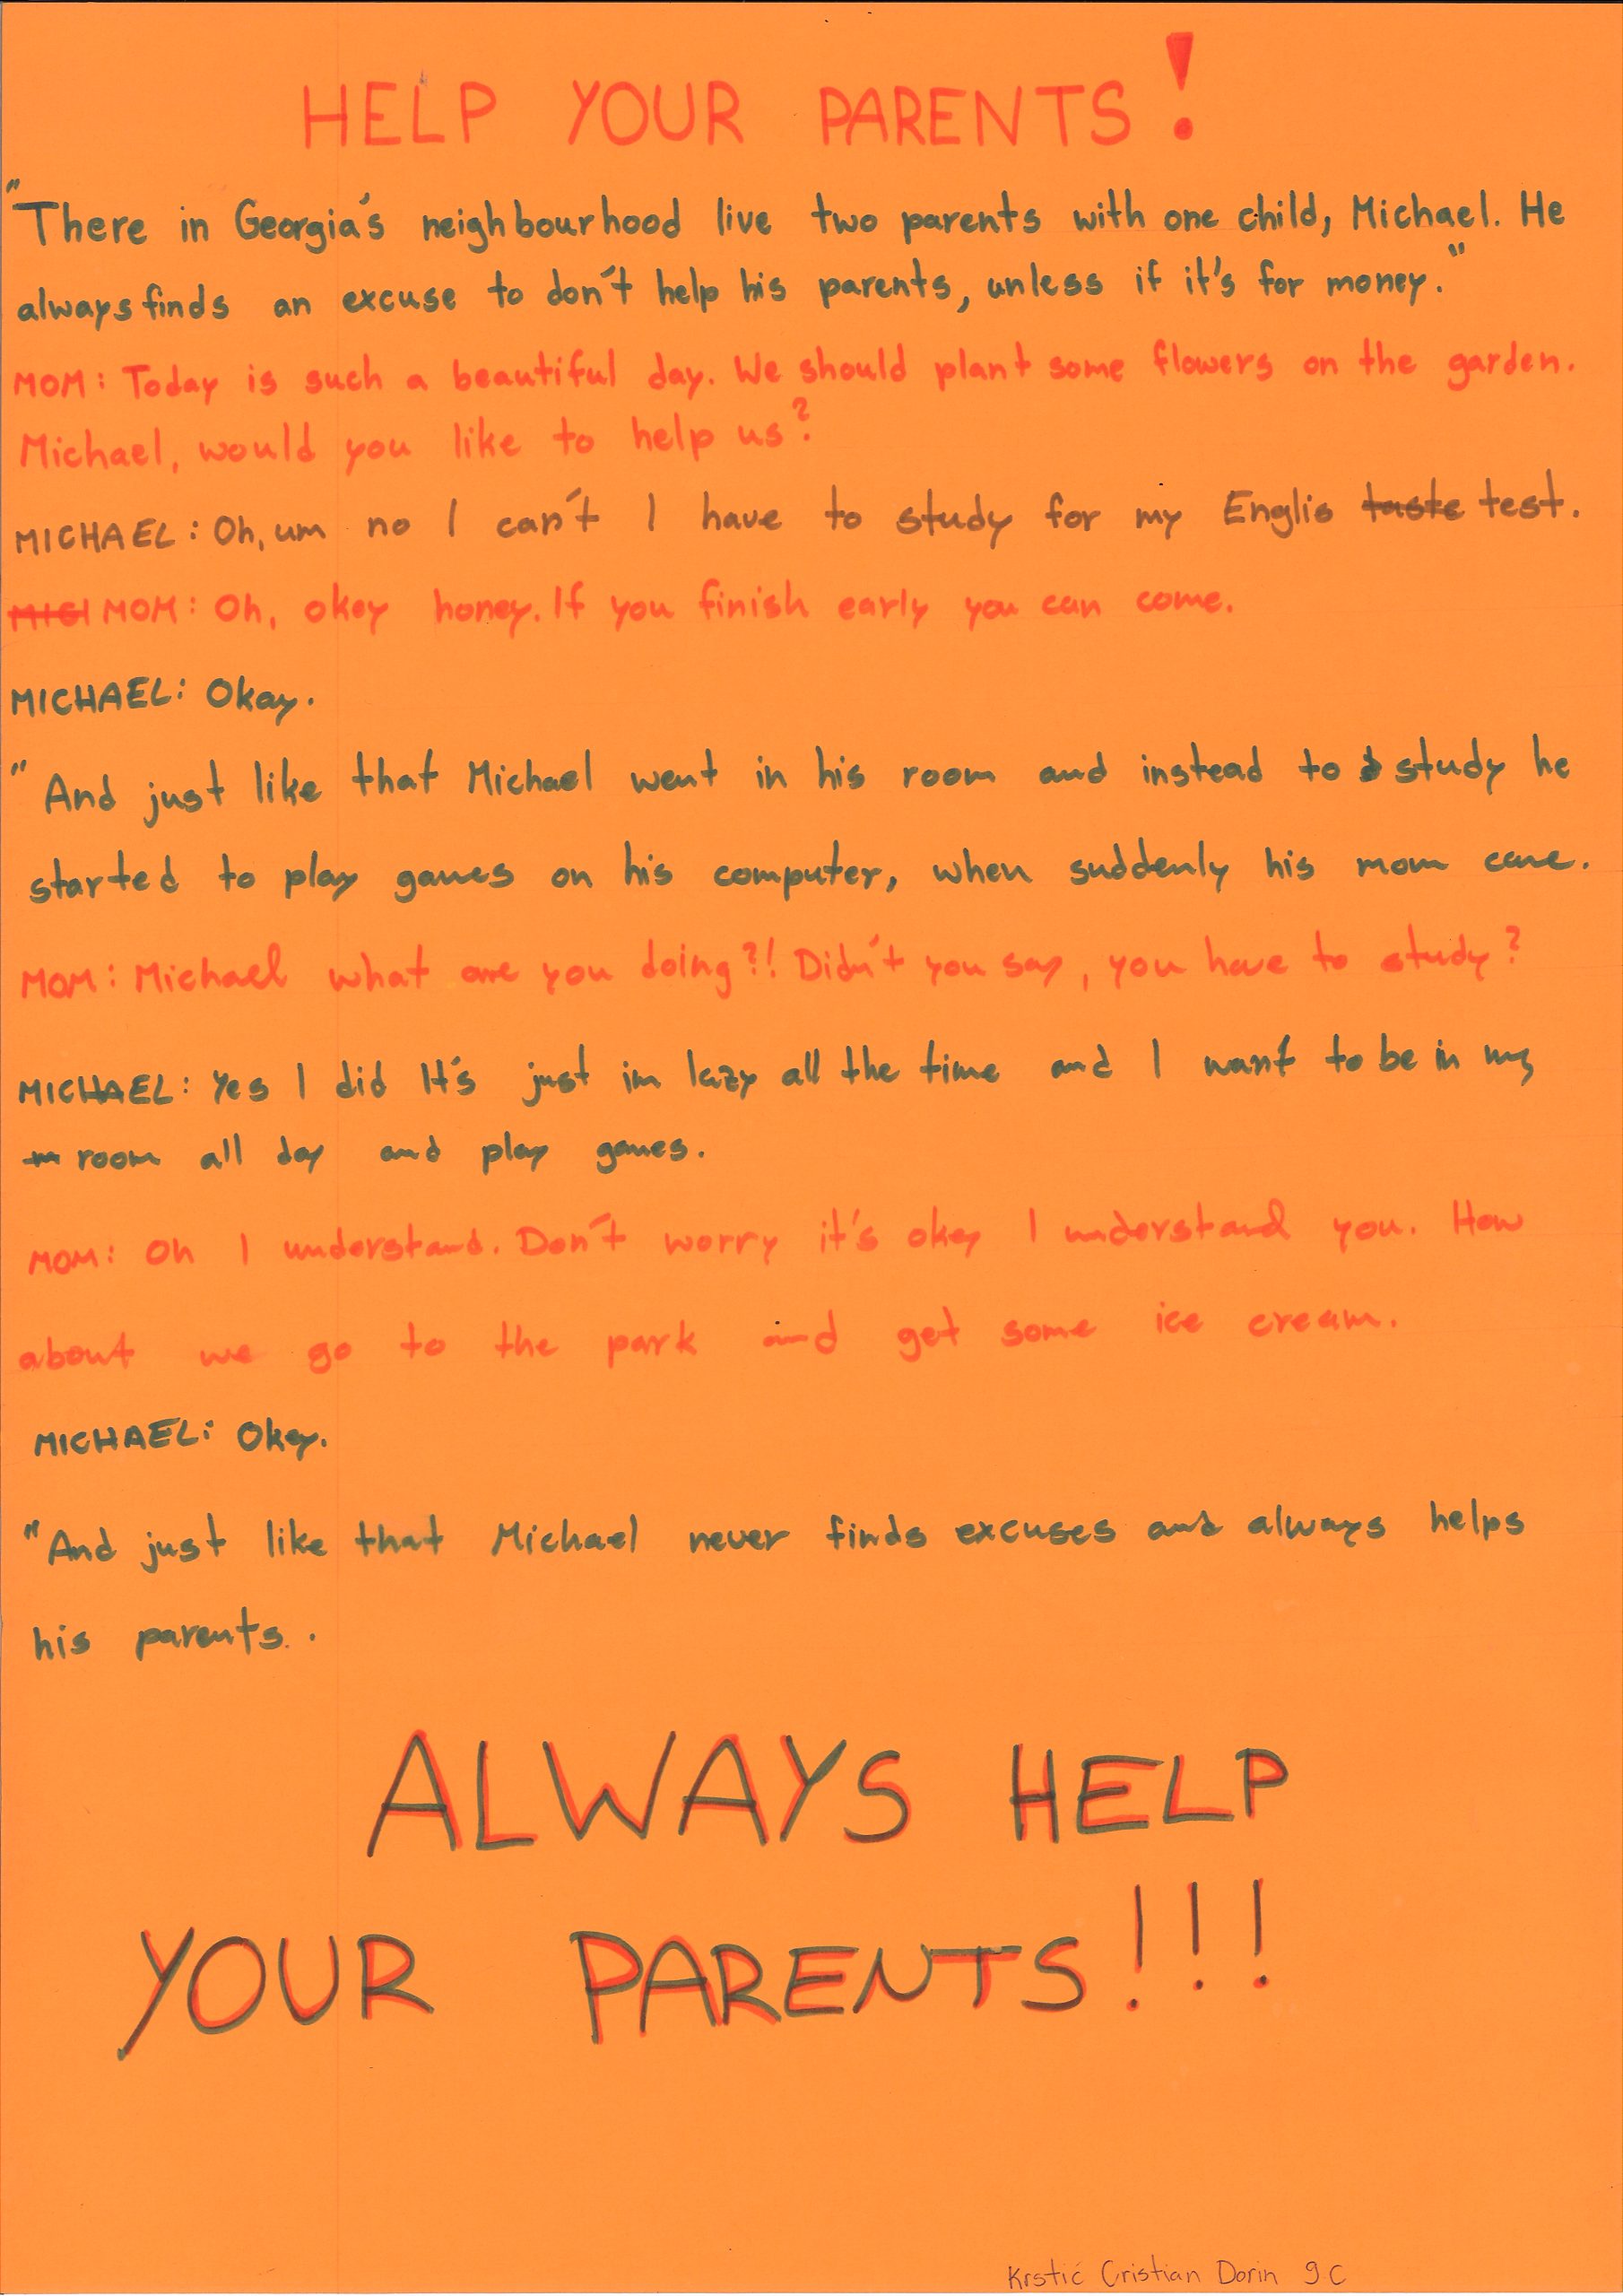 HELP YOUR PARENTS!
"There in Georgia's neighbourhood live two parents with one child, Michael. He
always finds an excuse to don't help his parents, unless if it's for money."
MOM: Today is such a beautiful day. We should plant some flowers on the garden.
Michael, would you like to help us?
MICHAEL: Oh, um no I can't I have to study for my Englis taste test.
MICI MOM: Oh, okey honey. If you finish early you can come.
MICHAEL: Okay.
"And just like that Michael went in his room and instead to s study he
started to play games on his computer, when suddenly his mom came.
MOM: Michael what are you doing?! Didn't you say, you have to study?
MICHAEL: Yes I did It's just im lazy all the time and I want to be in my
room all day and play games.
MOM: Oh I understand. Don't worry it's okey I understand you. How
about we go to the park and get some ice cream.
MICHAEL: Okey.
"And just like that Michael never finds excuses and always helps
his parents.
ALWAYS HELP
YOUR PARENTS!!!
Krstić Cristian Dorin 9.C